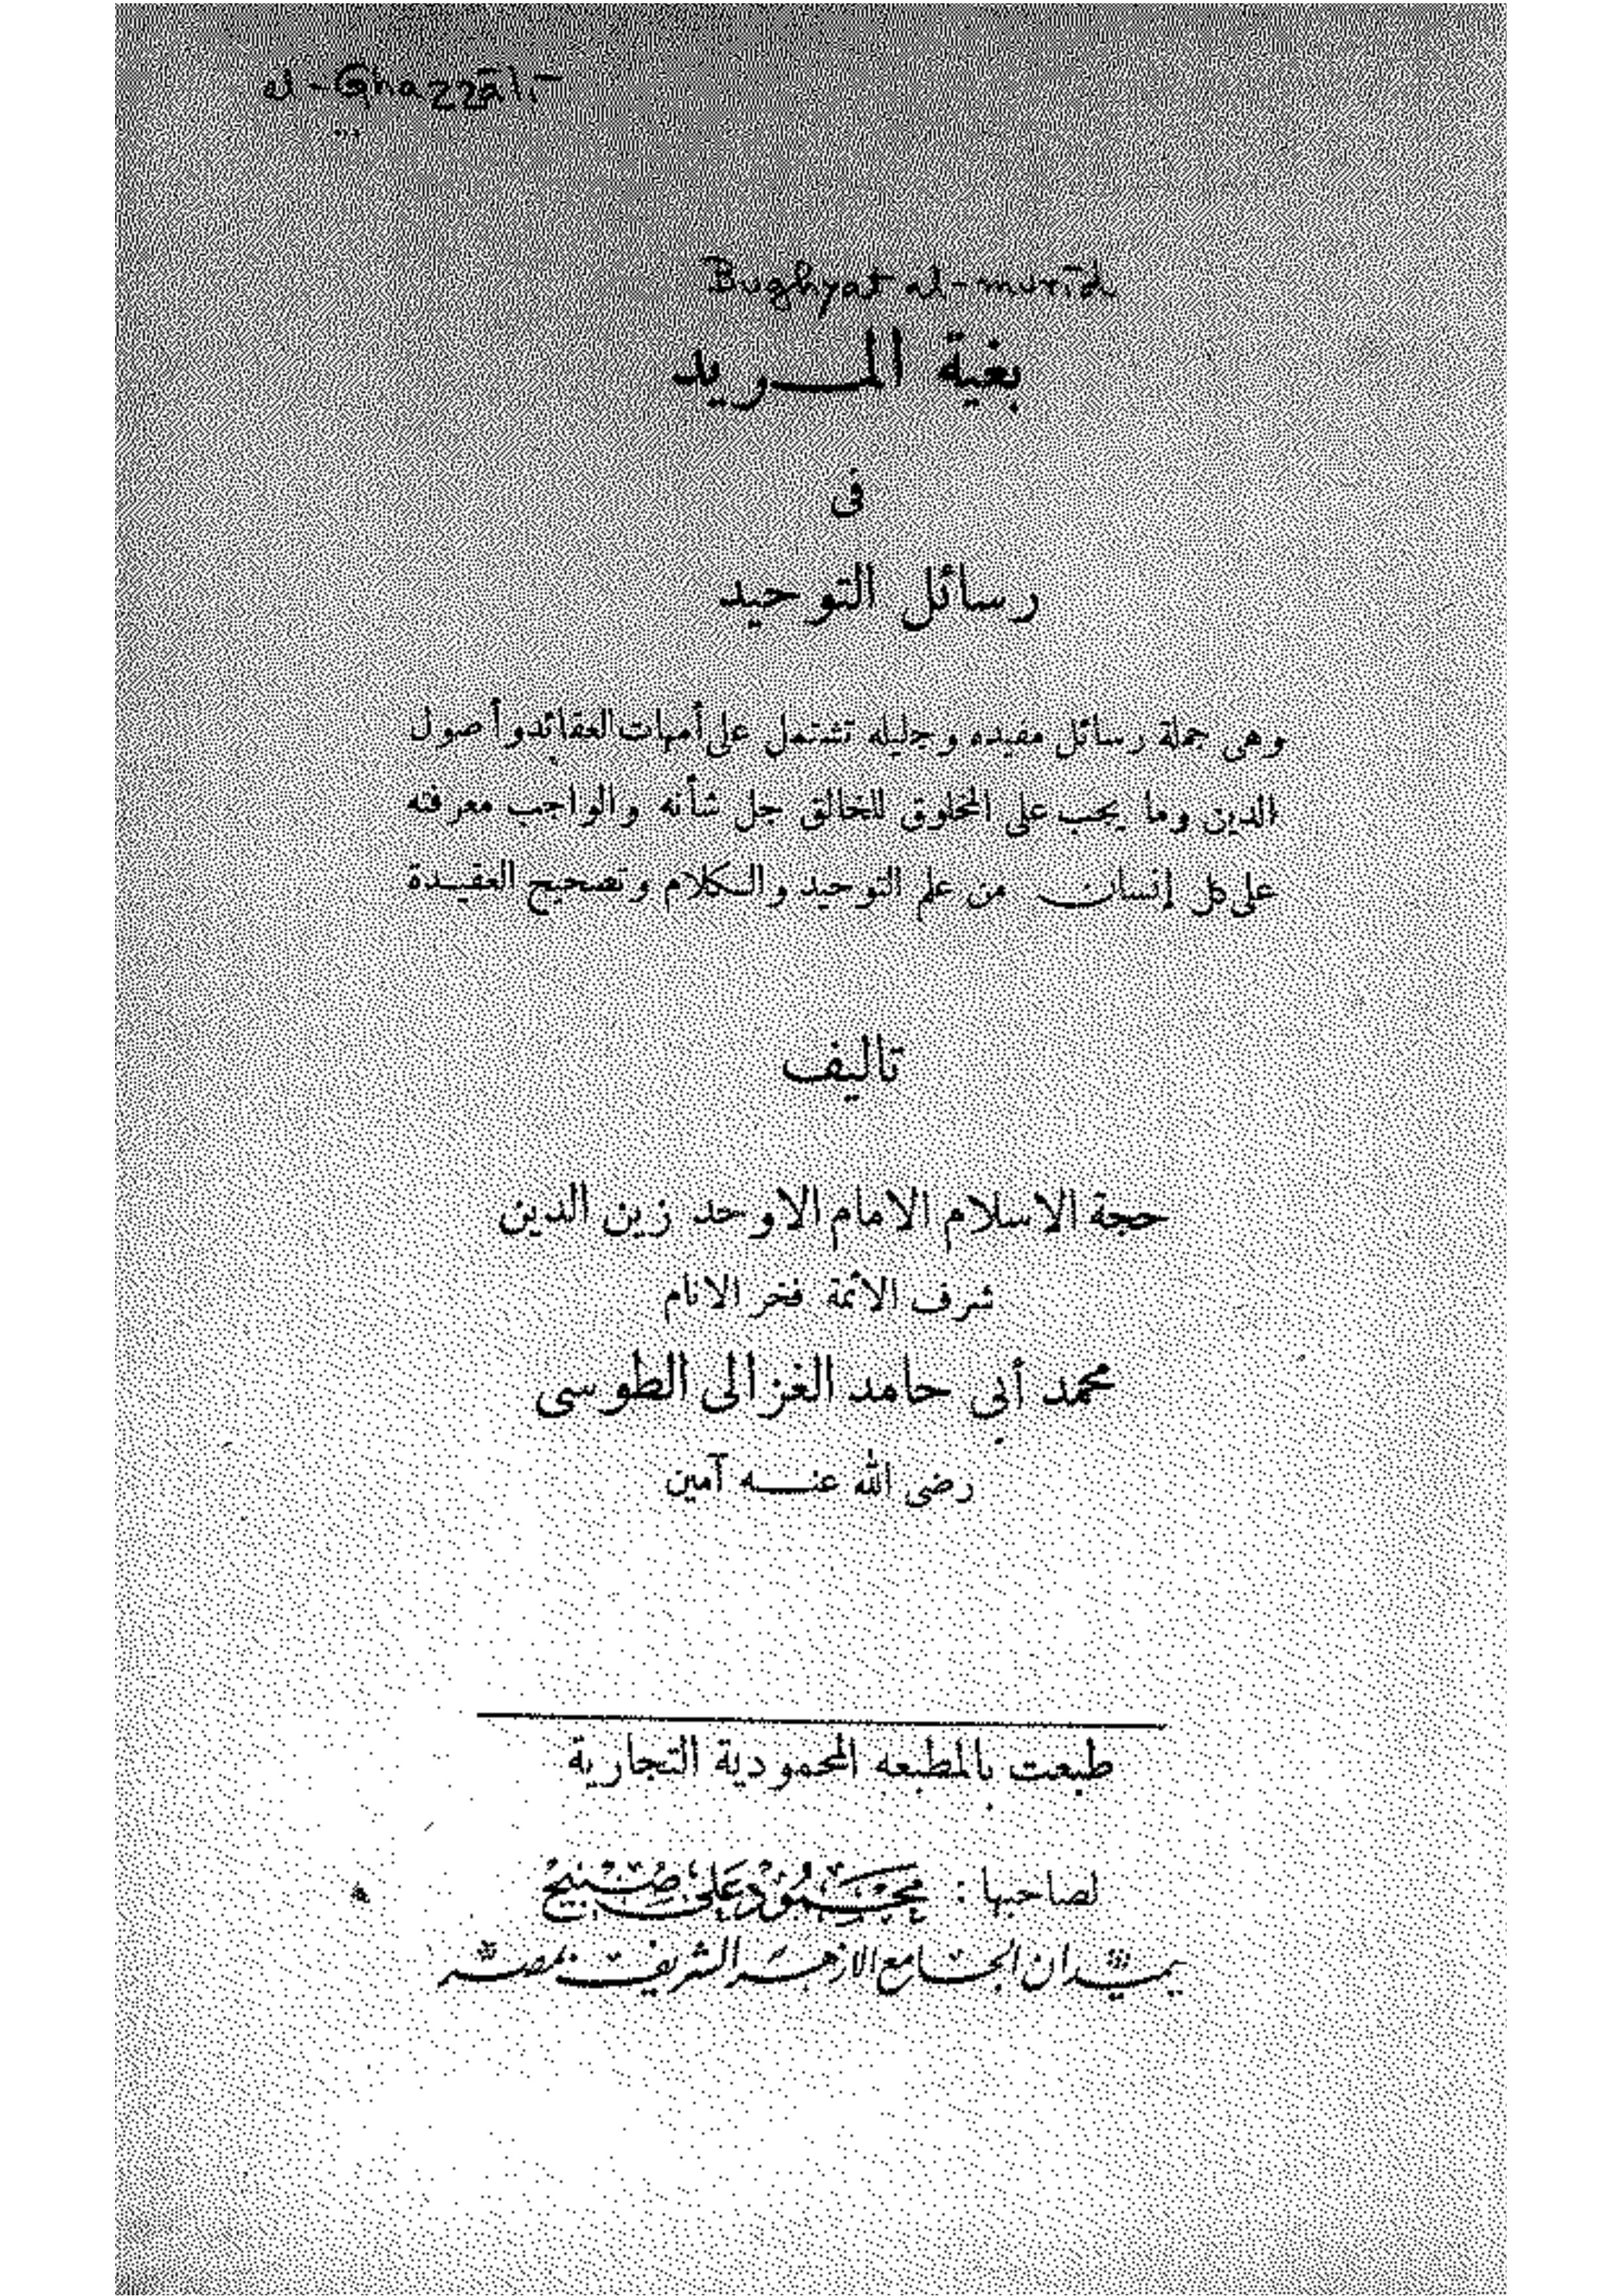 al-Ghazzālī
Bughyat al-murīd
بغية المريد
فى
رسائل التوحيد
وهى جملة رسائل مفيده وجليله تشتمل على أمهات العقائد وأصول
الدين وما يجب على المخلوق للخالق جل شأنه والواجب معرفته
على كل إنسان من علم التوحيد والكلام وتصحيح العقيدة
تاليف
حجة الاسلام الامام الاوحد زين الدين
شرف الأئمة فخر الانام
محمد أبي حامد الغزالى الطوسى
رضى الله عنه آمين
طبعت بالمطبعه المحمودية التجارية
لصاحبها : محمود على صبيح
بميدان الجامع الازهر الشريف بمصر